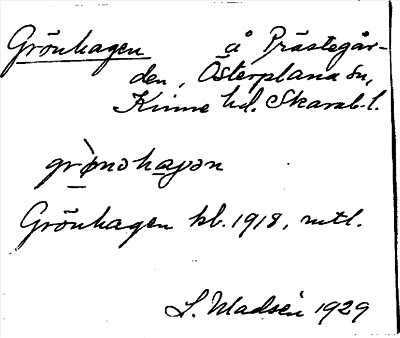 Grönhagen å Prästegår-
den, Österplana sn,
Kinne hd. Skarab. l.
grønəhagən
Grönhagen kb. 1918, mtl.
L. Madsén 1929